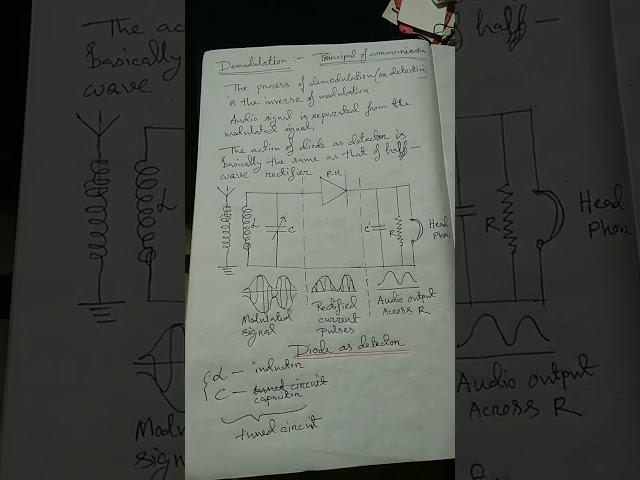 Demodulation :- Principal of communication
The process of demodulation (or detection)
is the inverse of modulation.
Audio signal is separated from the
modulated signal,
The action of diode as detector is
basically the same as that of half-
wave rectifier
P-N
L
C
C'
R
Head
Phone
Modulated
signal
Rectified
current
pulses
Audio output
Across R
Diode as detector
L - inductor
C - tuned circuit
capacitor
tuned circuit
The action
basically
wave
L
of half-
R
Head
Phone
Modu
sign
Audio output
Across R